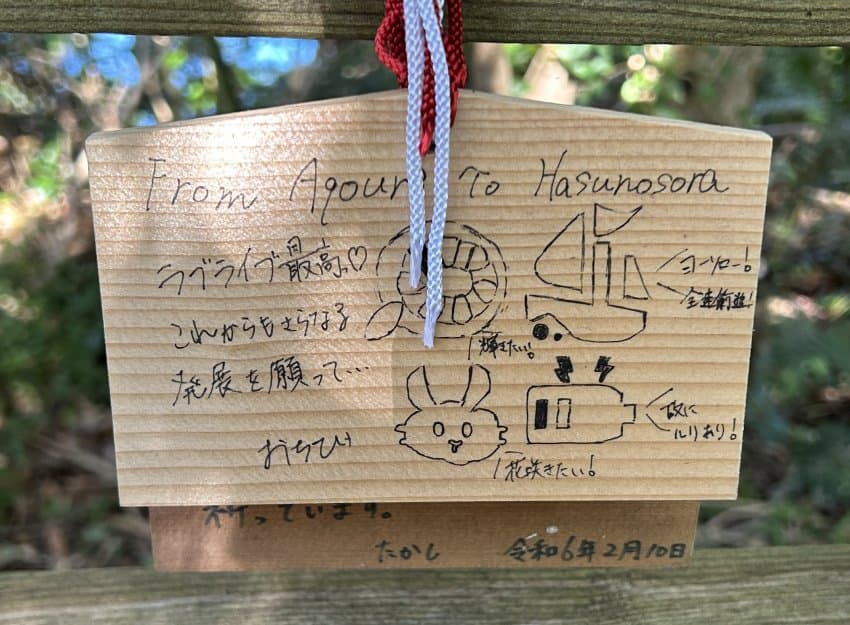 From Aqours To Hasunosora
ラブライブ最高。♡
これからもさらなる
発展を願って…
ヨーソロー!
全速前進!
輝きたい!
故に
ルリあり!
花咲きたい!
祈っています。
たかし 令和6年2月10日